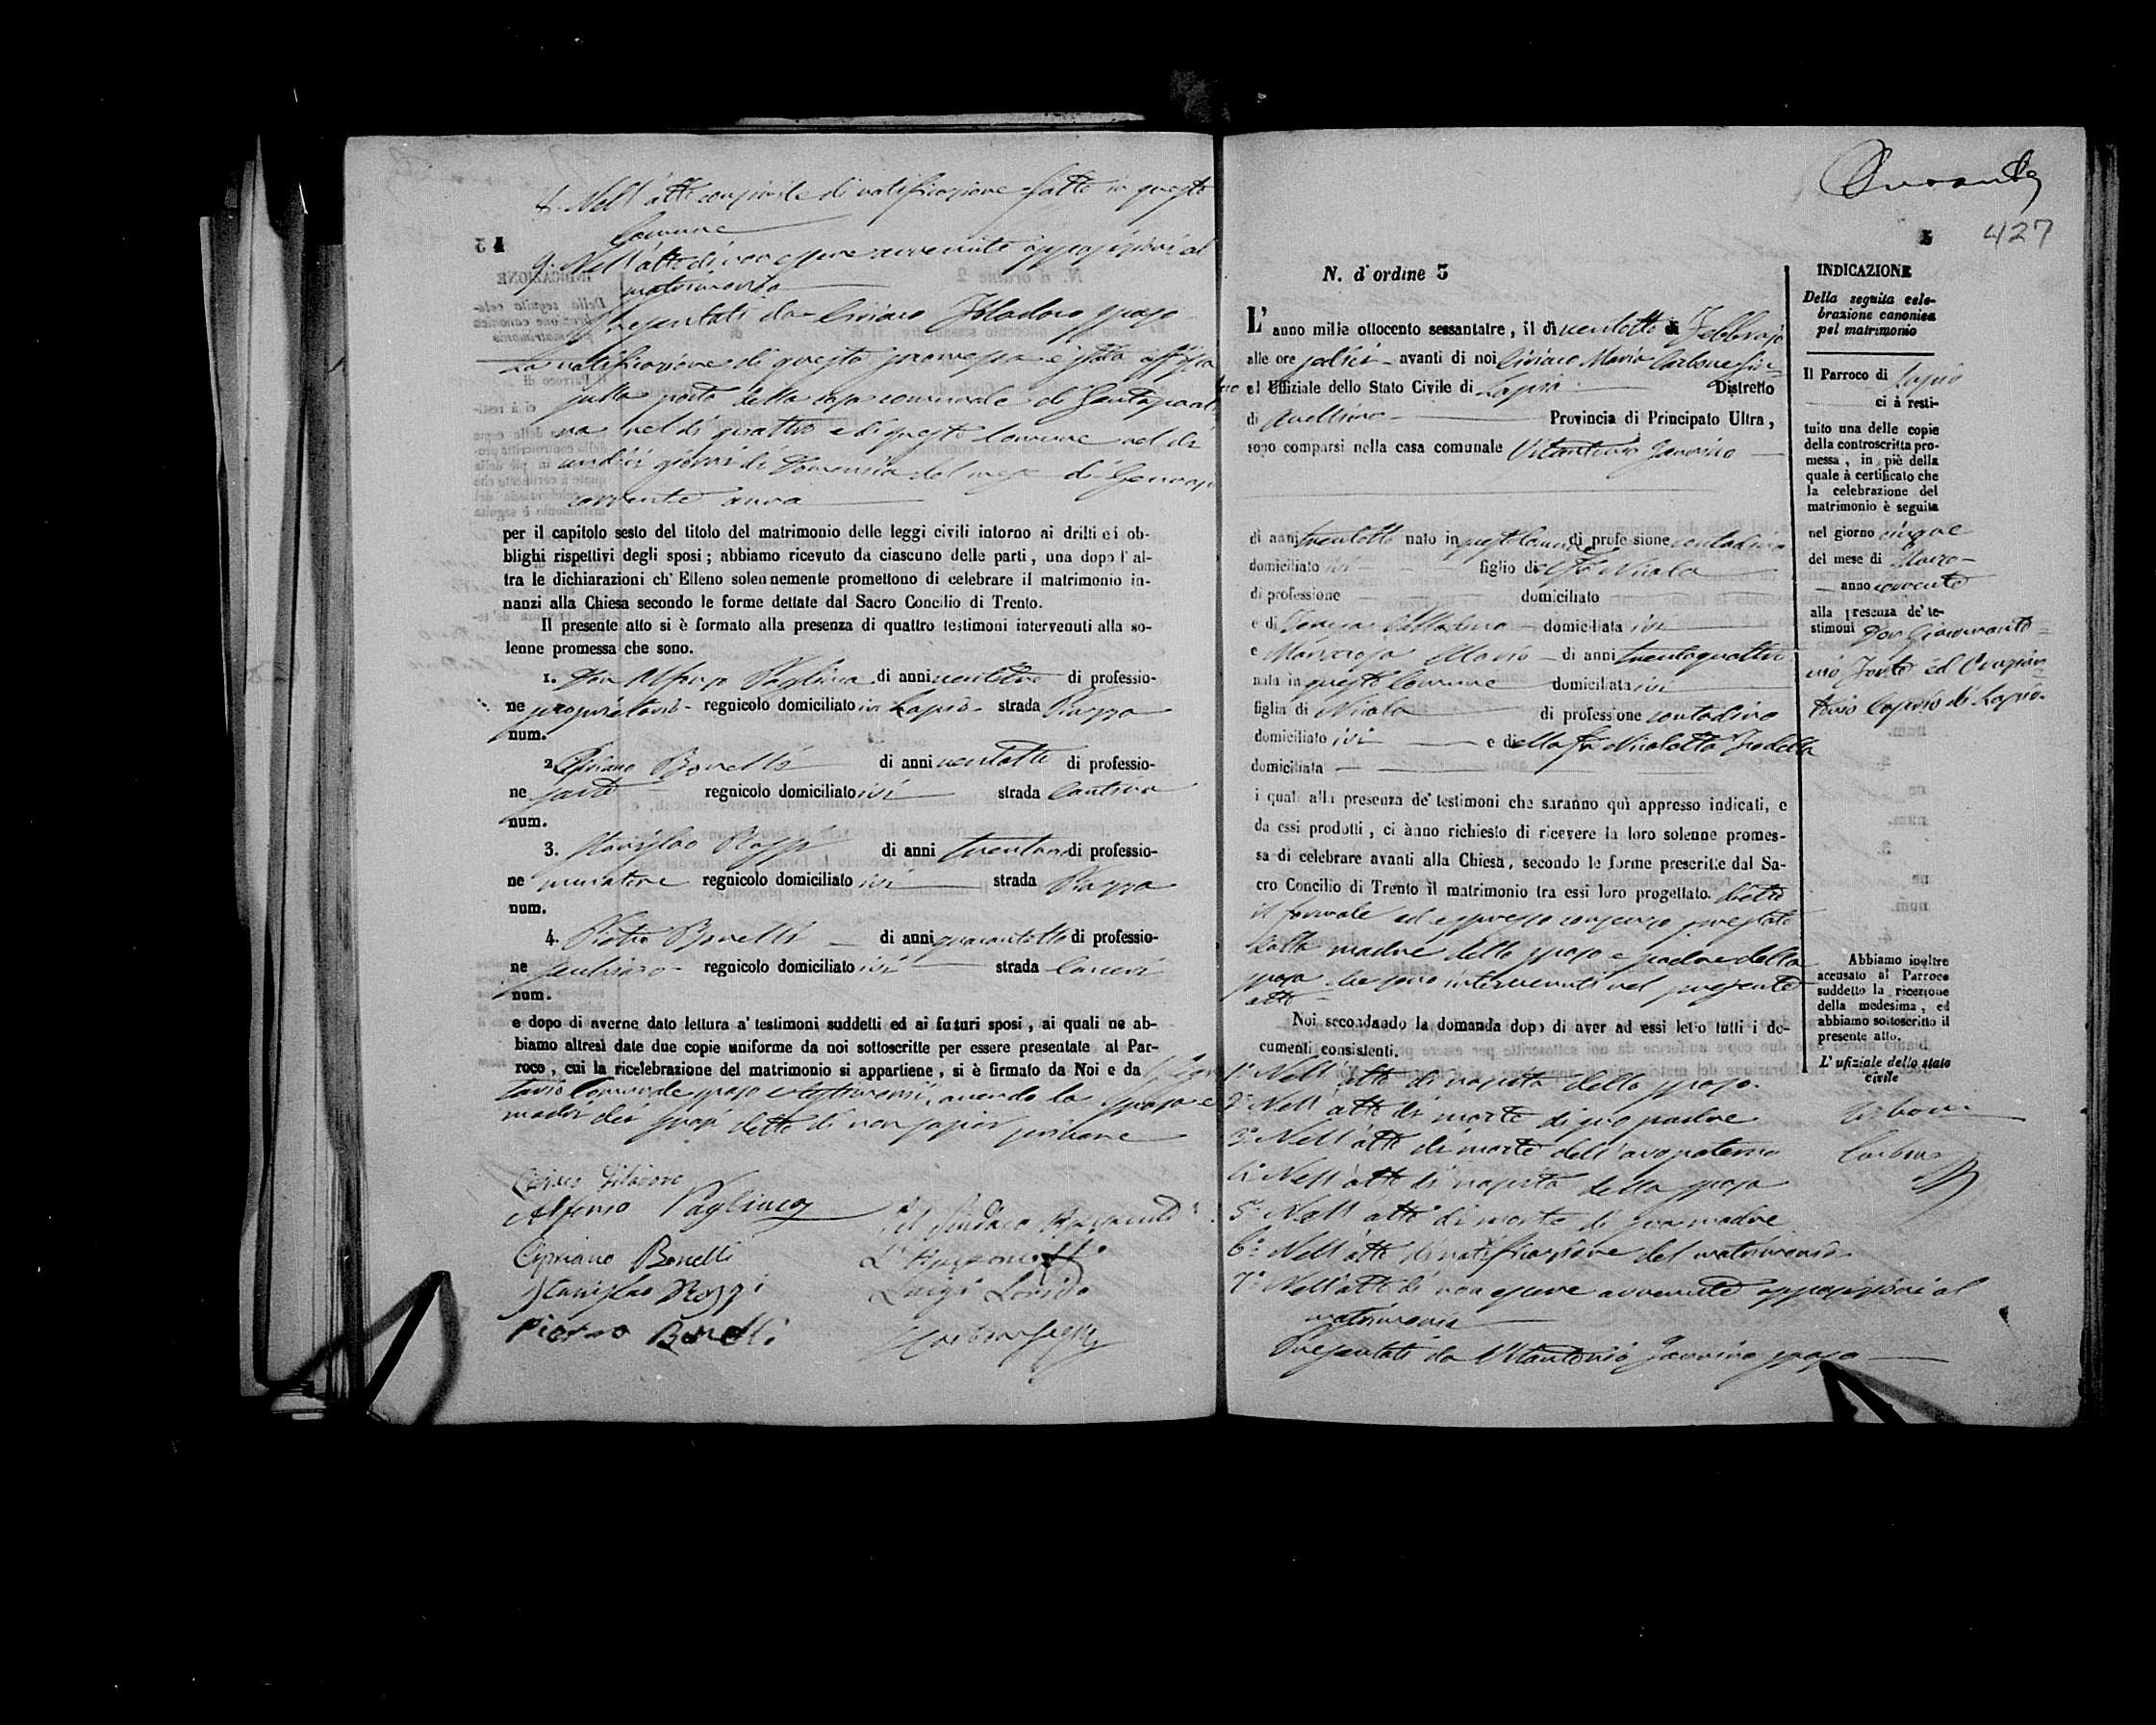 8. Nell'atto consimile di notificazione fatta in questo
Comune
9. Nell'atto di non essere avvenute opposizioni al
matrimonio
Presentati da Ciriaco Filadoro sposo
La notificazione di questa promessa è stata affissa
sulla porta della casa comunale di
nel dì quattro e di questo Comune nel dì
undici giorni di Domenica del mese di Gennajo
corrente anno
per il capitolo sesto del titolo del matrimonio delle leggi civili intorno ai dritti ei ob-
blighi rispettivi degli sposi; abbiamo ricevuto da ciascuno delle parti, una dopo l'al-
tra le dichiarazioni ch' Elleno solennemente promettono di celebrare il matrimonio in-
nanzi alla Chiesa secondo le forme dettate dal Sacro Concilio di Trento.
Il presente atto si è formato alla presenza di quattro testimoni intervenuti alla so-
lenne promessa che sono.
1. Don Alfonso Pagliuca di anni ventitre di professio-
ne proprietario regnicolo domiciliato in Lapio strada Piazza
num.
2. Cipriano Bonelli di anni ventotto di professio-
ne sarto regnicolo domiciliato ivi strada Cantina
num.
3. Stanislao Rozzi di anni di professio-
ne muratore regnicolo domiciliato ivi strada Piazza
num.
4. Pietro Bonelli di anni quarantotto di professio-
ne regnicolo domiciliato ivi strada
num.
e dopo di averne dato lettura a' testimoni suddetti ed ai futuri sposi, ai quali ne ab-
biamo altresì date due copie uniforme da noi sottoscritte per essere presentate al Par-
roco, cui la ricelebrazione del matrimonio si appartiene, si è firmato da Noi e da
Comunale sposo e testimoni, avendo la sposa e
madri dei sposi detto di non saper scrivere
Ciriaco Filadoro
Alfonso Pagliuca
Cipriano Bonelli
Stanislao Rozzi
Pietro Bonelli
Il Sindaco
Luigi
427
N. d'ordine 3
L' anno mille ottocento sessantatre, il dì ventotto di Febbrajo
alle ore sedici avanti di noi Ciriaco Maria Carbone Sin-
daco ed Uffiziale dello Stato Civile di Lapio Distretto
di Avellino Provincia di Principato Ultra,
sono comparsi nella casa comunale Vitantonio Jannino
di anni trentotto nato in questo Comune di professione contadino
domiciliato ivi figlio del fu Nicola
di professione domiciliato
e di domiciliata ivi
e Mariarosa di anni trentaquattro
nata in questo Comune domiciliata ivi
figlia di Nicola di professione contadino
domiciliato ivi e della fu Nicoletta
domiciliata
i quali alla presenza de' testimoni che saranno quì appresso indicati, e
da essi prodotti, ci ànno richiesto di ricevere la loro solenne promes-
sa di celebrare avanti alla Chiesa, secondo le forme prescritte dal Sa-
cro Concilio di Trento il matrimonio tra essi loro progettato. Dietro
il formale ed espresso consenso prestato
dalla madre dello sposo e padre della
sposa che sono intervenuti nel presente
atto
Noi secondando la domanda dopo di aver ad essi letto tutti i do-
cumenti consistenti.
1° Nell'atto di nascita dello sposo.
2° Nell'atto di morte di suo padre
3° Nell'atto di morte dell'avo paterno
4° Nell'atto di nascita della sposa
5° Nell'atto di morte di sua madre
6° Nell'atto di notificazione del matrimonio
7° Nell'atto di non essere avvenute opposizioni al
matrimonio
Presentati da Vitantonio Jannino sposo
INDICAZIONE
Della seguita cele-
brazione canonica
pel matrimonio
Il Parroco di Lapio
ci à resti-
tuito una delle copie
della controscritta pro-
messa, in piè della
quale à certificato che
la celebrazione del
matrimonio è seguita
nel giorno cinque
del mese di Marzo
anno corrente
alla presenza de' te-
stimoni Don Giannanto-
nio Forte ed
di Lapio.
Abbiamo inoltre
accusato al Parroco
suddetto la ricezione
della medesima, ed
abbiamo sottoscritto il
presente atto.
L' ufiziale dello stato
civile
Carbone